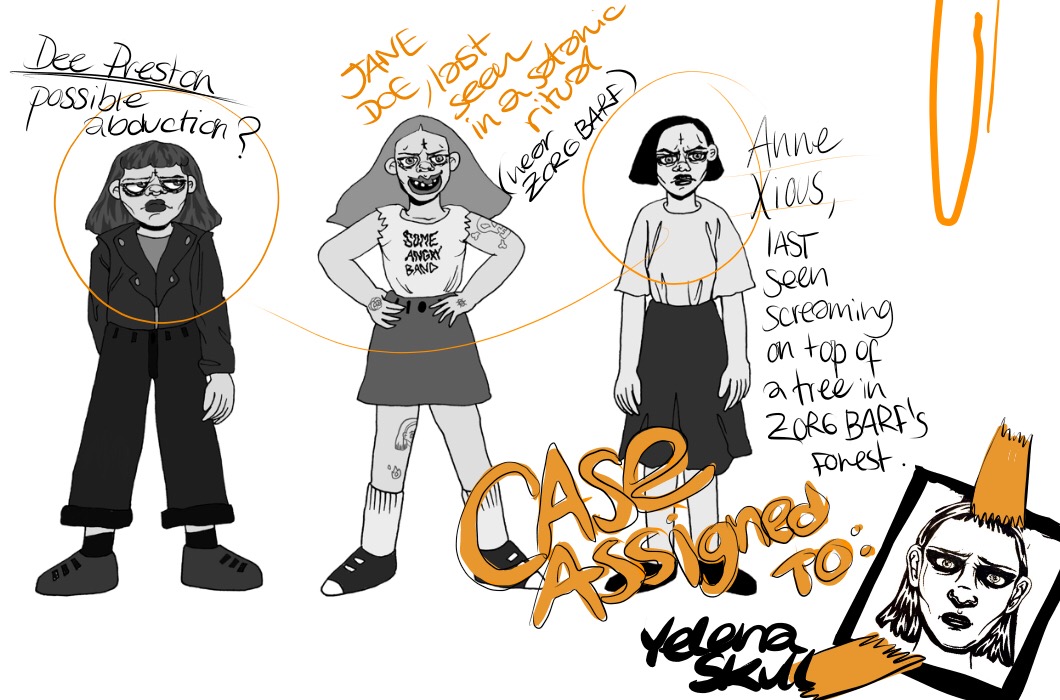 Dee Preston
possible
abduction?
JANE
DOE, last
seen
in a satanic
ritual
(near
ZORG BARF)
SOME
ANGRY
BAND
Anne
Xious,
lAST
seen
screaming
on top of
a tree in
ZORG BARF's
Forest.
CASe
ASSigned
TO:
Yelena
Skull